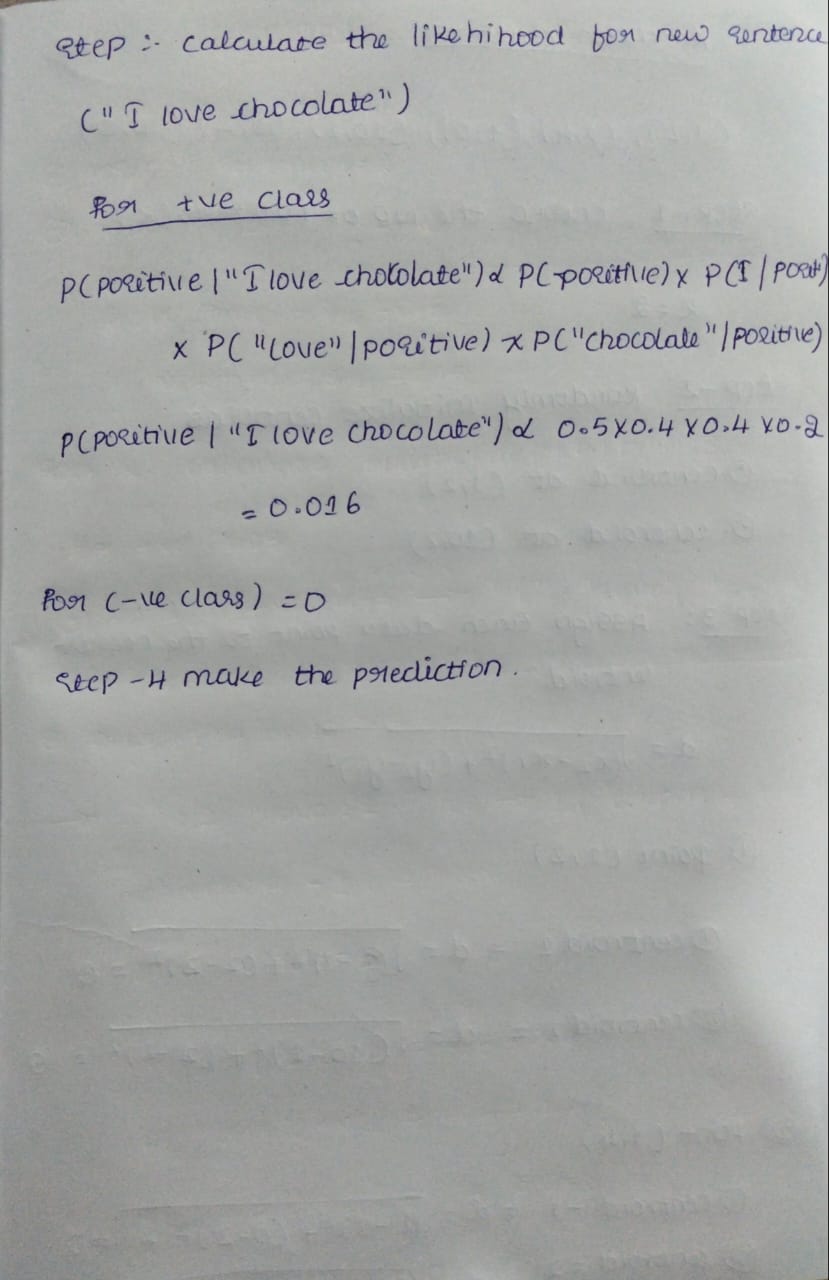 Step :- calculate the likehihood for new sentence
("I love chocolate")
For +ve class
P(positive | "I love chocolate") α P(positive) x P(I / posit)
x P("love" | positive) x P("chocolate" | positive)
P(positive | "I love chocolate") α 0.5 x 0.4 x 0.4 x 0.2
= 0.016
For (-ve class) = 0
Step -4 make the prediction.